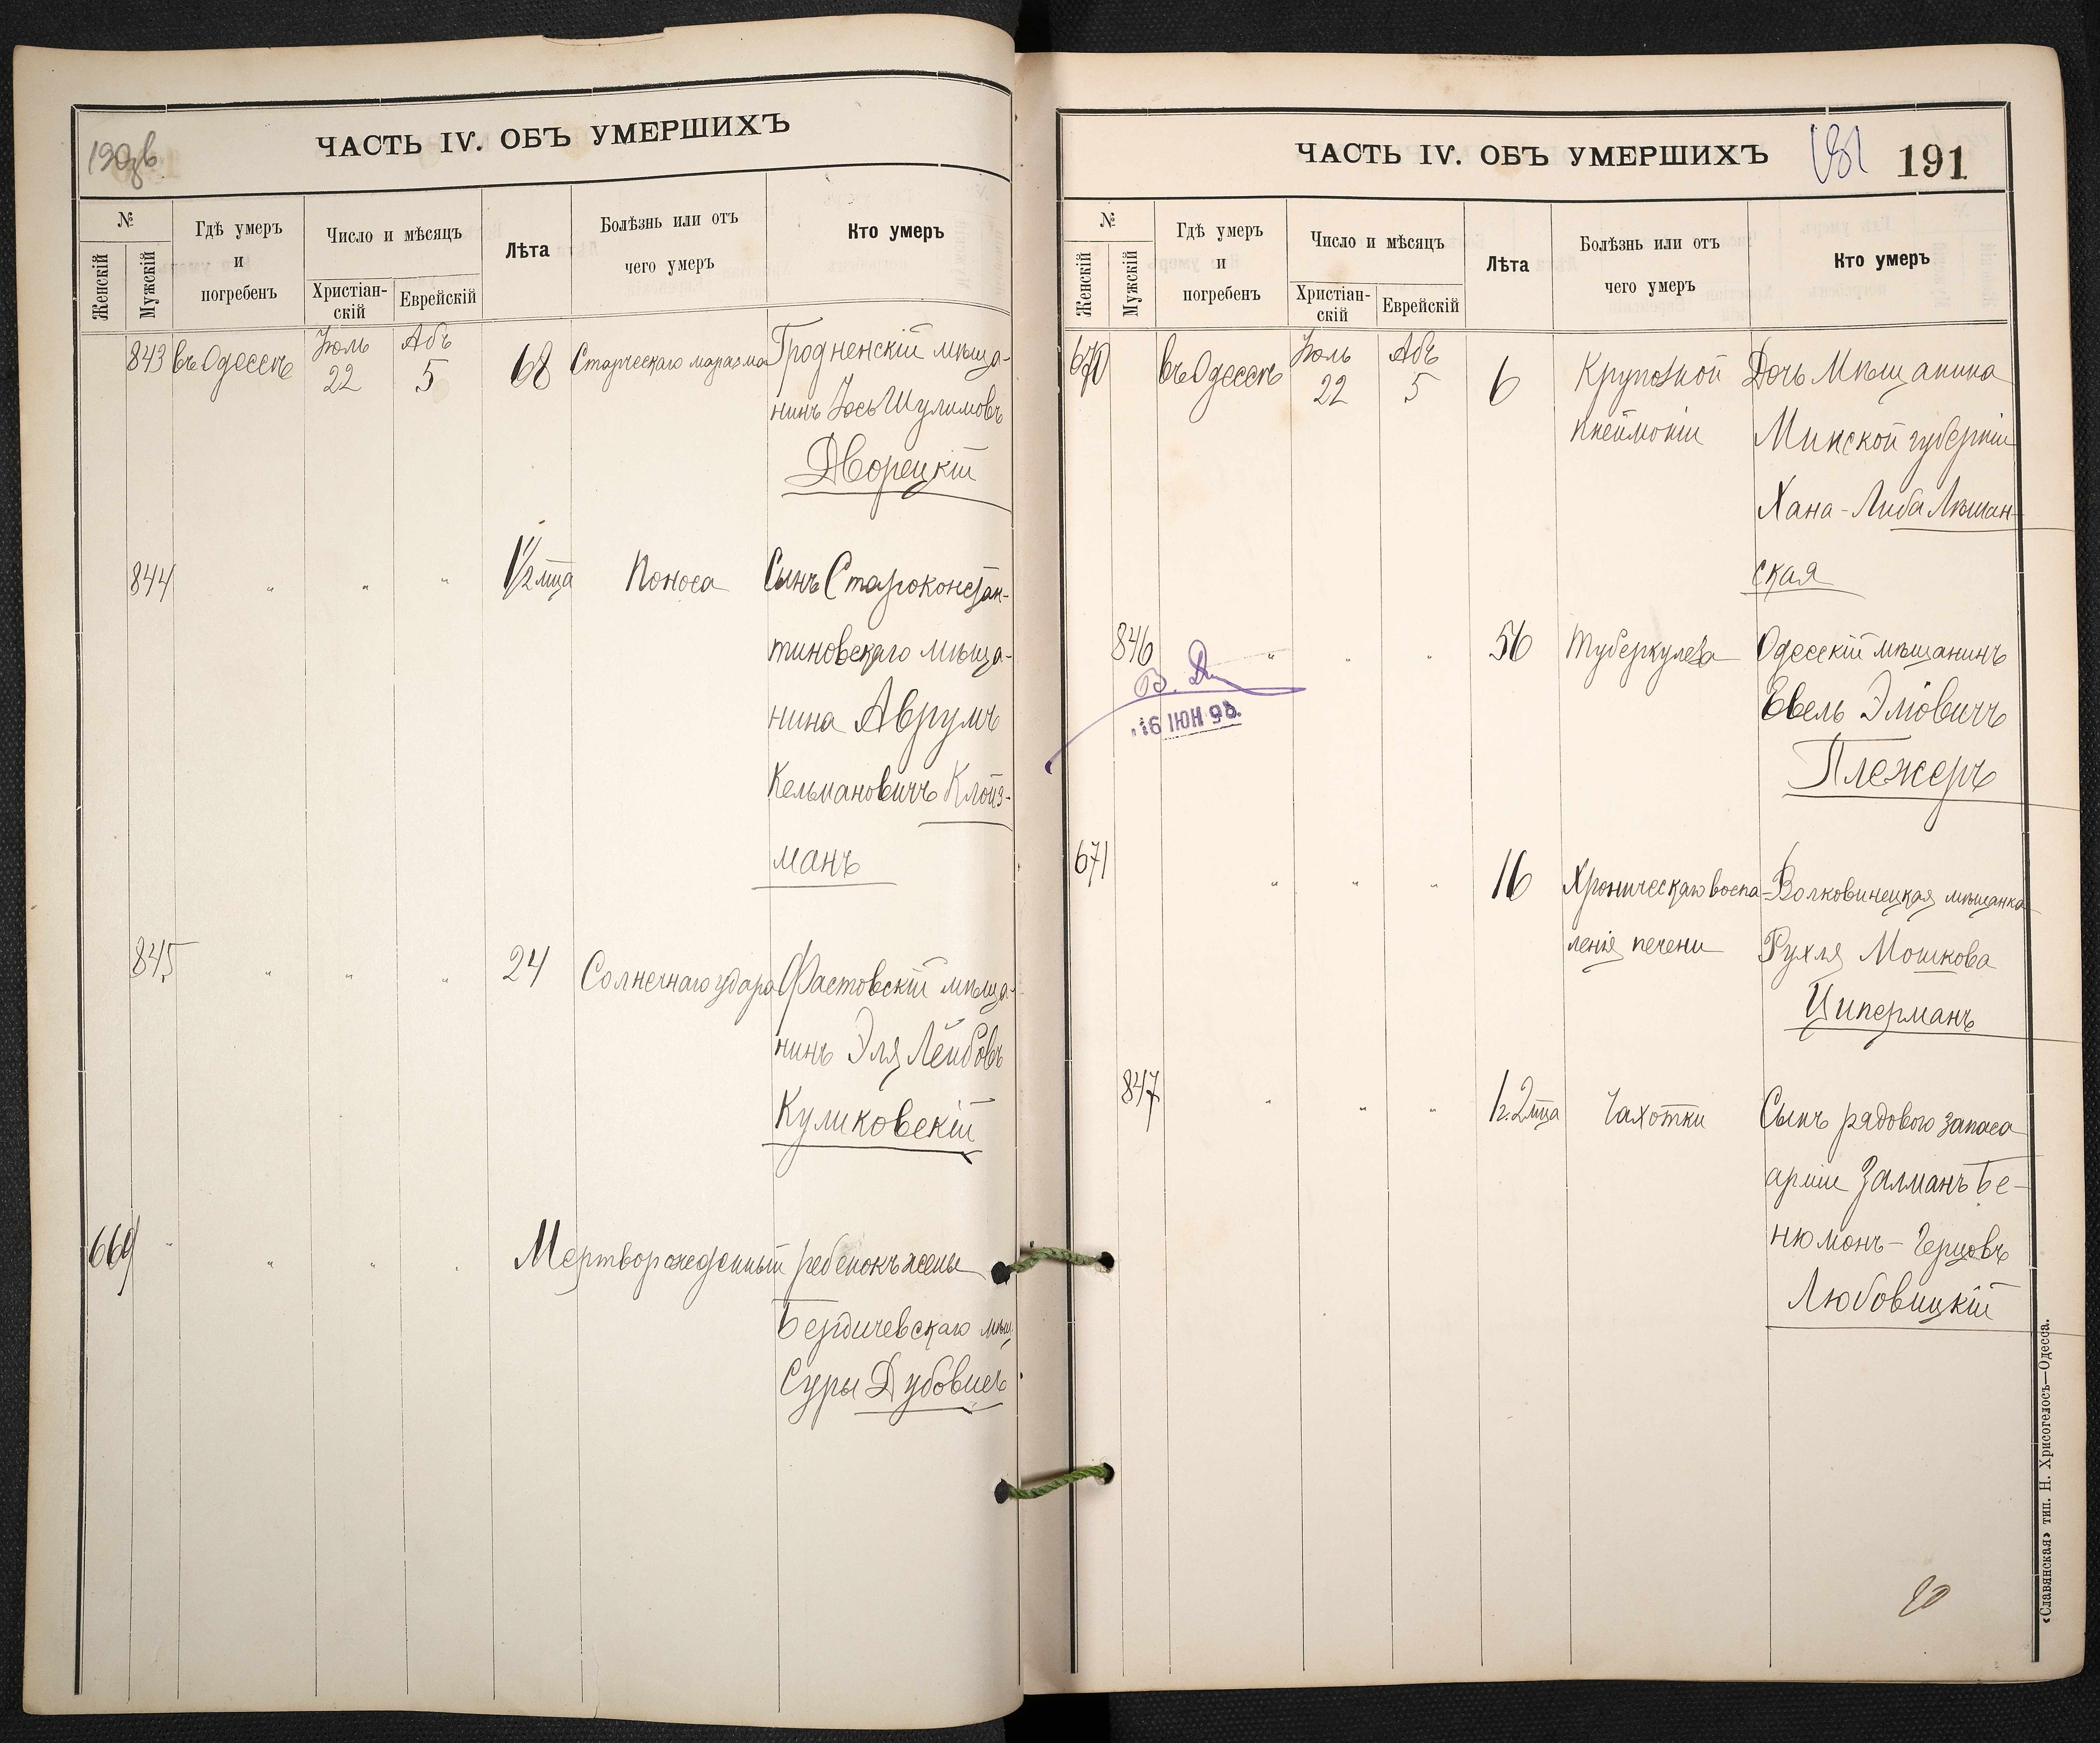 ЧАСТЬ IV. ОБЪ УМЕРШИХЪ
№
Женскій
Мужскій
Гдѣ умеръ
и
погребенъ
Число и мѣсяцъ
Христіан-
скій
Еврейскій
Лѣта
Болѣзнь или отъ
чего умеръ
Кто умеръ
843 въ Одессѣ Іюль 22 Абъ 5 68 Старческаго маразма Гродненскій мѣща-
нинъ Іось Шулимовъ
Дворецкій
844 " " " 1 1/2 мца Поноса Сынъ Староконстан-
тиновскаго мѣща-
нина Аврумъ
Кельмановичъ Клойз-
манъ
845 " " " 24 Солнечнаго удара Фастовскій мѣща-
нинъ Эля Лейбовъ
Куликовскій
669 " " " Мертворожденный ребенокъ жены
Бердичевскаго мѣщ.
Суры Дубовисъ
ЧАСТЬ IV. ОБЪ УМЕРШИХЪ
191
№
Женскій
Мужскій
Гдѣ умеръ
и
погребенъ
Число и мѣсяцъ
Христіан-
скій
Еврейскій
Лѣта
Болѣзнь или отъ
чего умеръ
Кто умеръ
670 въ Одессѣ Іюль 22 Абъ 5 6 Крупозной Дочь Мѣщанина
пнеймоніи Минской губерніи
Хана-Либа Лѣшан-
ская
846 " " " 56 Туберкулеза Одесскій мѣщанинъ
Евель Эліовичъ
16 ІЮН 98.
Плежеръ
671 " " " 16 Хроническаго воспа- Волковинецкая мѣщанка
ленія печени Рухля Мошкова
Циперманъ
847 " " " 1г. 2 мца Чахотки Сынъ рядового запаса
арміи Залманъ Бе-
нюмонъ-Герцовъ
Любовицкій
«Славянская» тип. Н. Хрисогелосъ—Одесса.